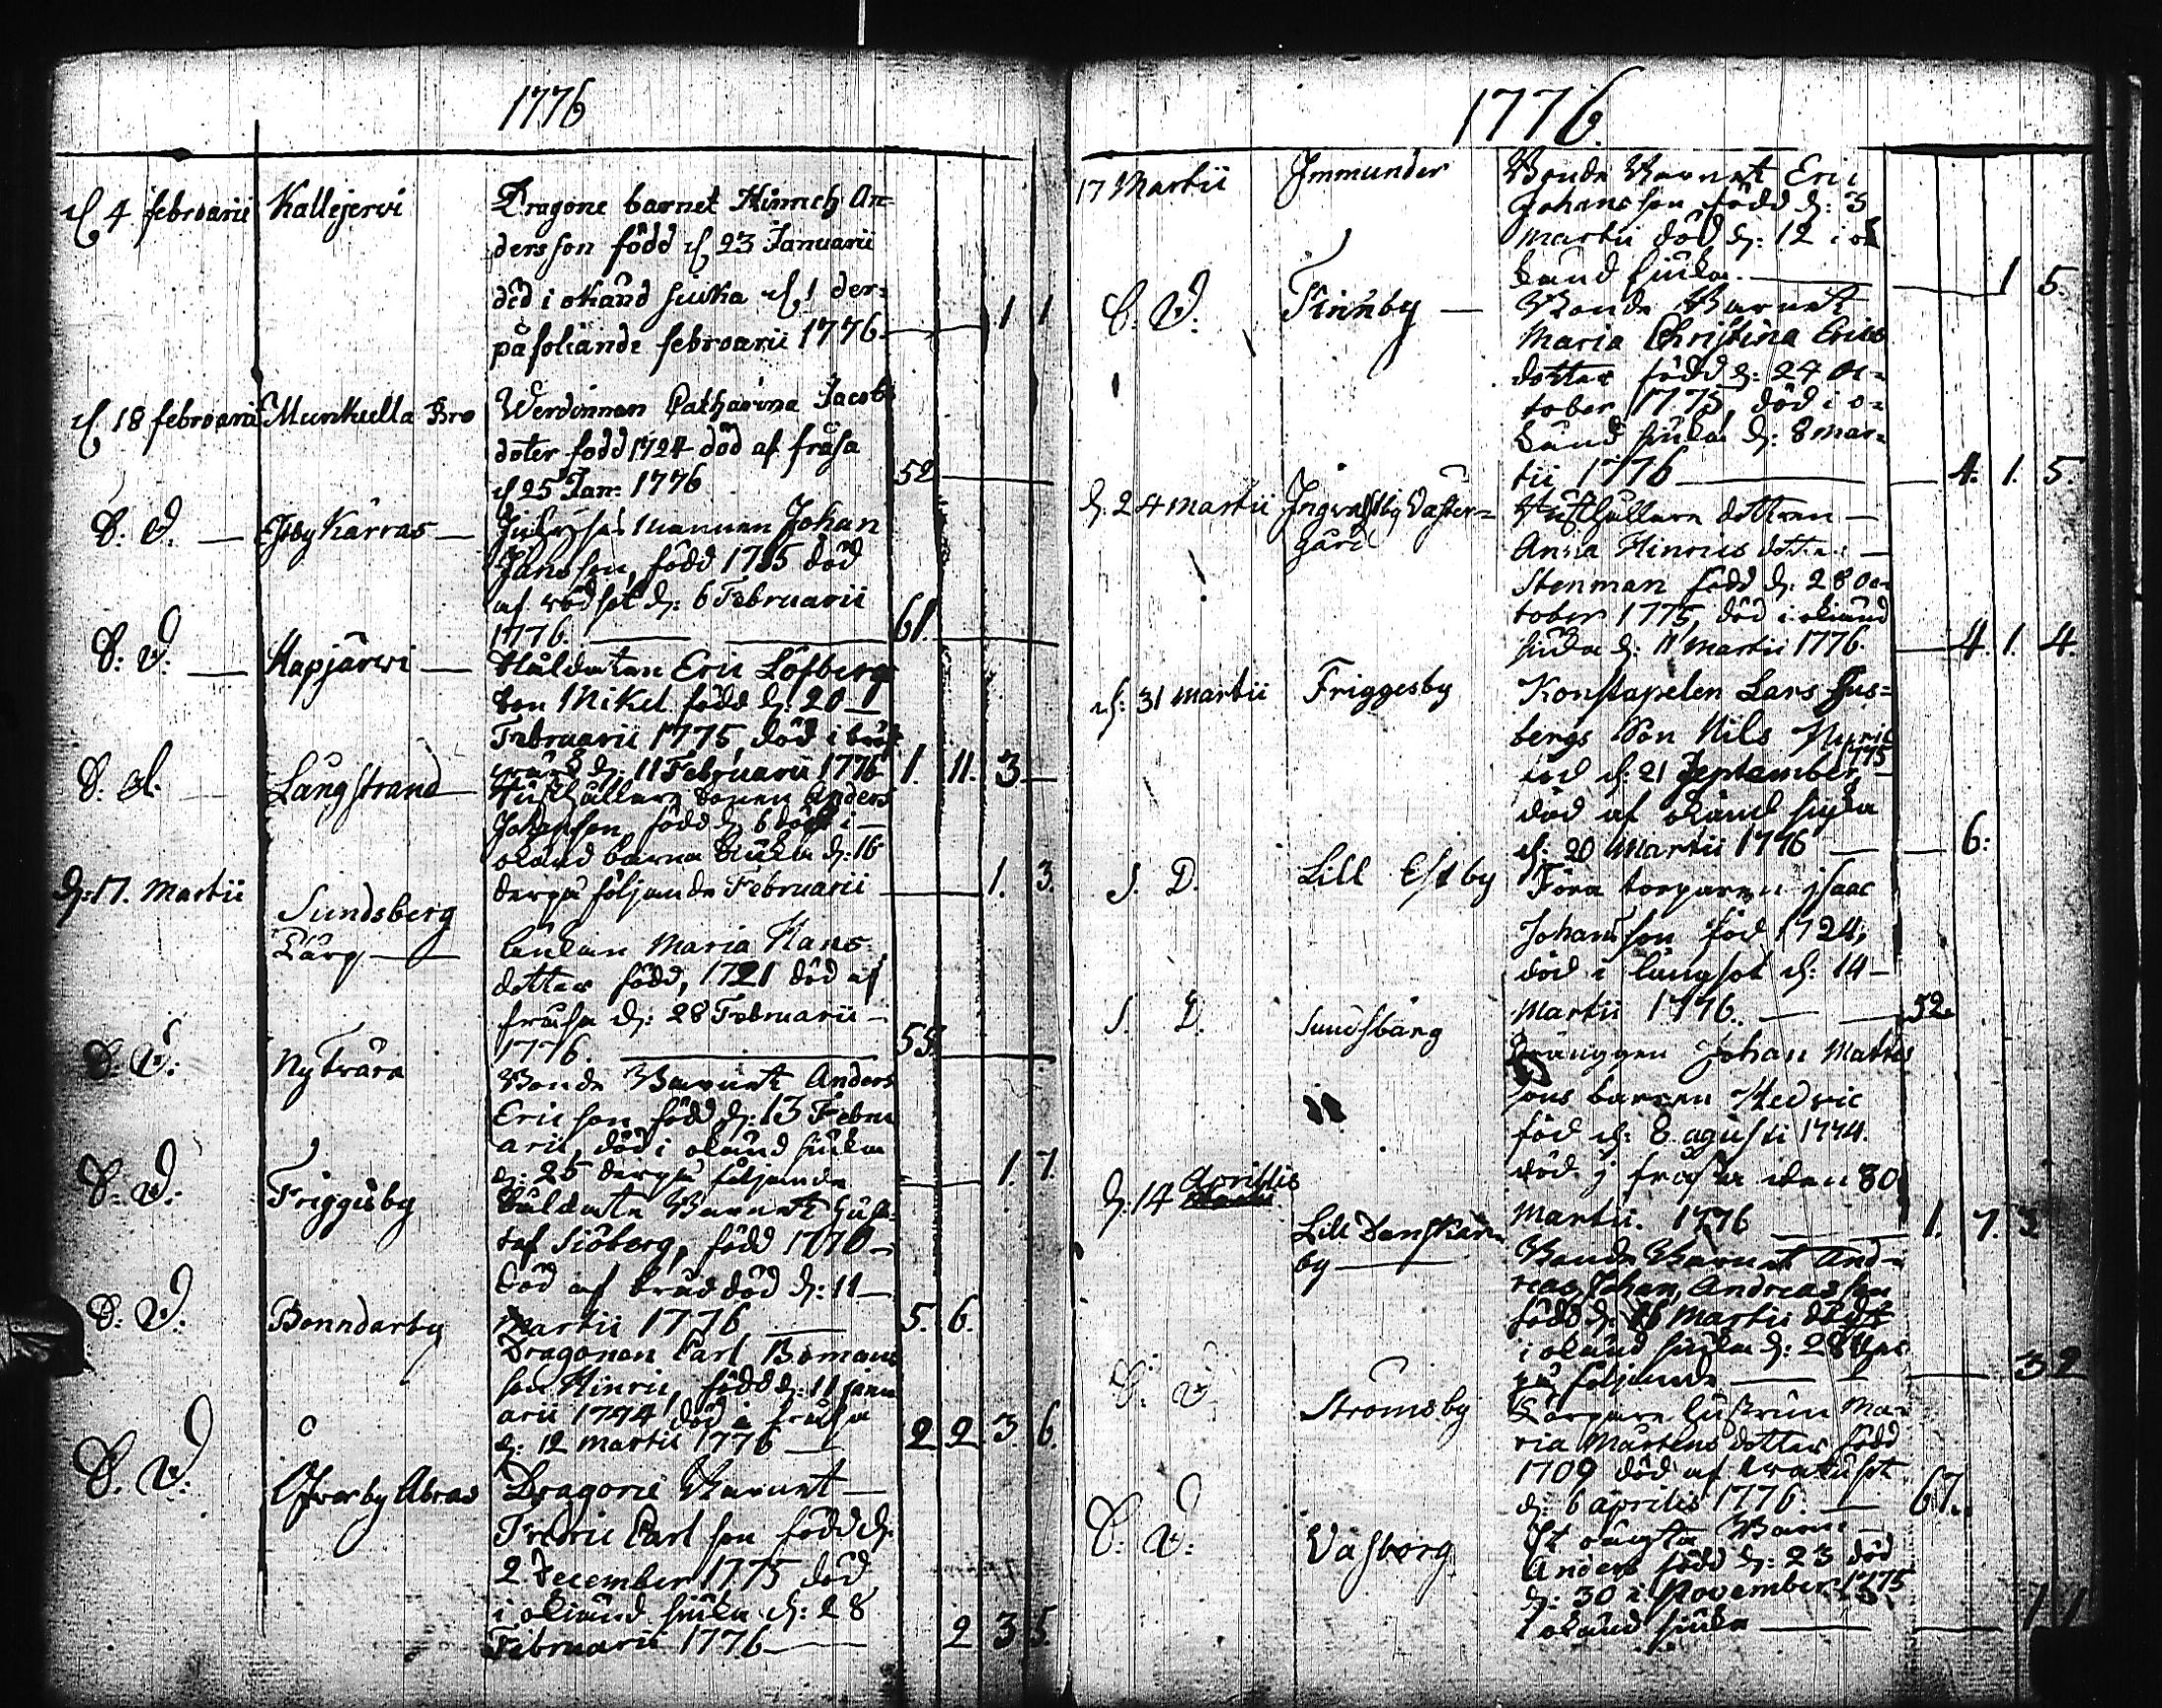 1776
d 4 febroarii Kallejervi Dragone barnet Hinrich An=
dersson född d 23 Januarii
död i okänd siuka d, 1 der=
påföliande febroarii 1776 1 1
d 18 febroarii Munkulla Bro Werdinnan Catharina Jacobs
doter fodd 1724 död af fråsa
d 25 Jan: 1776 52
S: D. Esby Karras mannen Johan
Jansson, född 1715 död
af rödsot d: 6 Februarii
1776. 61.
S: D: Hapjärwi Såldaten Eric Löfberg
Son Mikel född d: 20
Februarii 1775, död i
d: 11 Februarii 1776 1. 11. 3
S. d. Långstrand Husshållare Sonen Anders
Johansson, född d, 6 död i
okänd barna siuka d: 16
derpå följande Februarii 1. 3.
d: 17. Martii Sundsberg
Torp Enkan Maria Hans
dotter född, 1721 död af
fråssa d: 28 Februarii
1776. 55.
S: D: Ny Trära Bonde Barnet Anders
Ericsson född d: 13 Febru
arii, död i okänd siuka
d: 25 derpå följande 1. 7.
S: D: Friggisby Såldate Barnet Gus
taf Siöberg, född 1770
död af bråddöd d: 11
Martii 1776 5. 6.
S: D: Bonndarby Dragonen Carl Bomans
son Hinric, född d: 11 Janu
arii 1774 död i fråssa
d: 12 Martii 1776 2 2 3. 6.
S: D: Öfverby Abras Dragone Barnet
Fredric Carlsson född d:
2 December 1775 död
i okiänd siuka d: 28
Februarii 1776 2 3 5.
1776.
17 Martii Immunder Bonde Barnet Eric
Johansson född d: 3
Martii död d: 12 i ok
känd siuka. 1 5.
S: D: Finnby Bonde Barnet
Maria Christina Erics
dotter född d: 24 Oc=
tober 1775, död i o=
känd siuka d: 8 Mar=
tii 1776 4. 1. 5.
d. 24 Martii Ingvalsby Väster=
gård Husshållare dottren
Anna Hinrics dotter
Stenman född d: 28 Oc
tober 1775, död i okiänd
siuka d: 11 Martii 1776. 4. 1. 4.
d: 31 Martii Friggesby Konstapelen Lars Hus=
bergs Son Nils Hinric
född d: 21 September 1775
död af okänd siuka
d: 20 Martii 1776 6:
S. D. Lill Esbby Föra torparen jsaac
Johansson föd 1724,
död i lungsot d: 14
Martii 1776. 52
S. D. Sundsbärg Dränggen Johan Matts
sons barnen Hedvic
föd d: 8 agusti 1774.
död j fråssa den 30
Martii. 1776 1. 7. 3
d: 14 Aprillis
Lill Danskar
by Bonde Barnet And
reas Johan, Andreasson
född d: Martii död
i okänd siuka d: 28 der
på följande 3 2
S: D Strömsby Torpare hustrun Ma
ria Mårtens dotter född
1709 död af
d: 6 aprilis 1776. 67.
S: D: Vasborg Et oängta Barn
Anders född d: 23 död
d: 30 i November 1775
okänd siuka 1 1